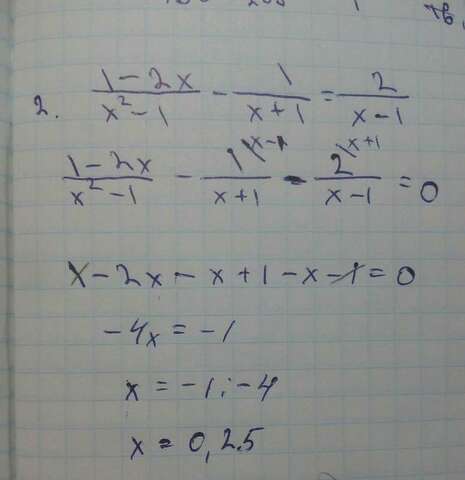 2. (1-2x)/(x²-1) - 1/(x+1) = 2/(x-1)
(1-2x)/(x²-1) - 1\x-1/(x+1) - 2\x+1/(x-1) = 0
1-2x-x+1-x-1=0
-4x = -1
x = -1:-4
x = 0,25